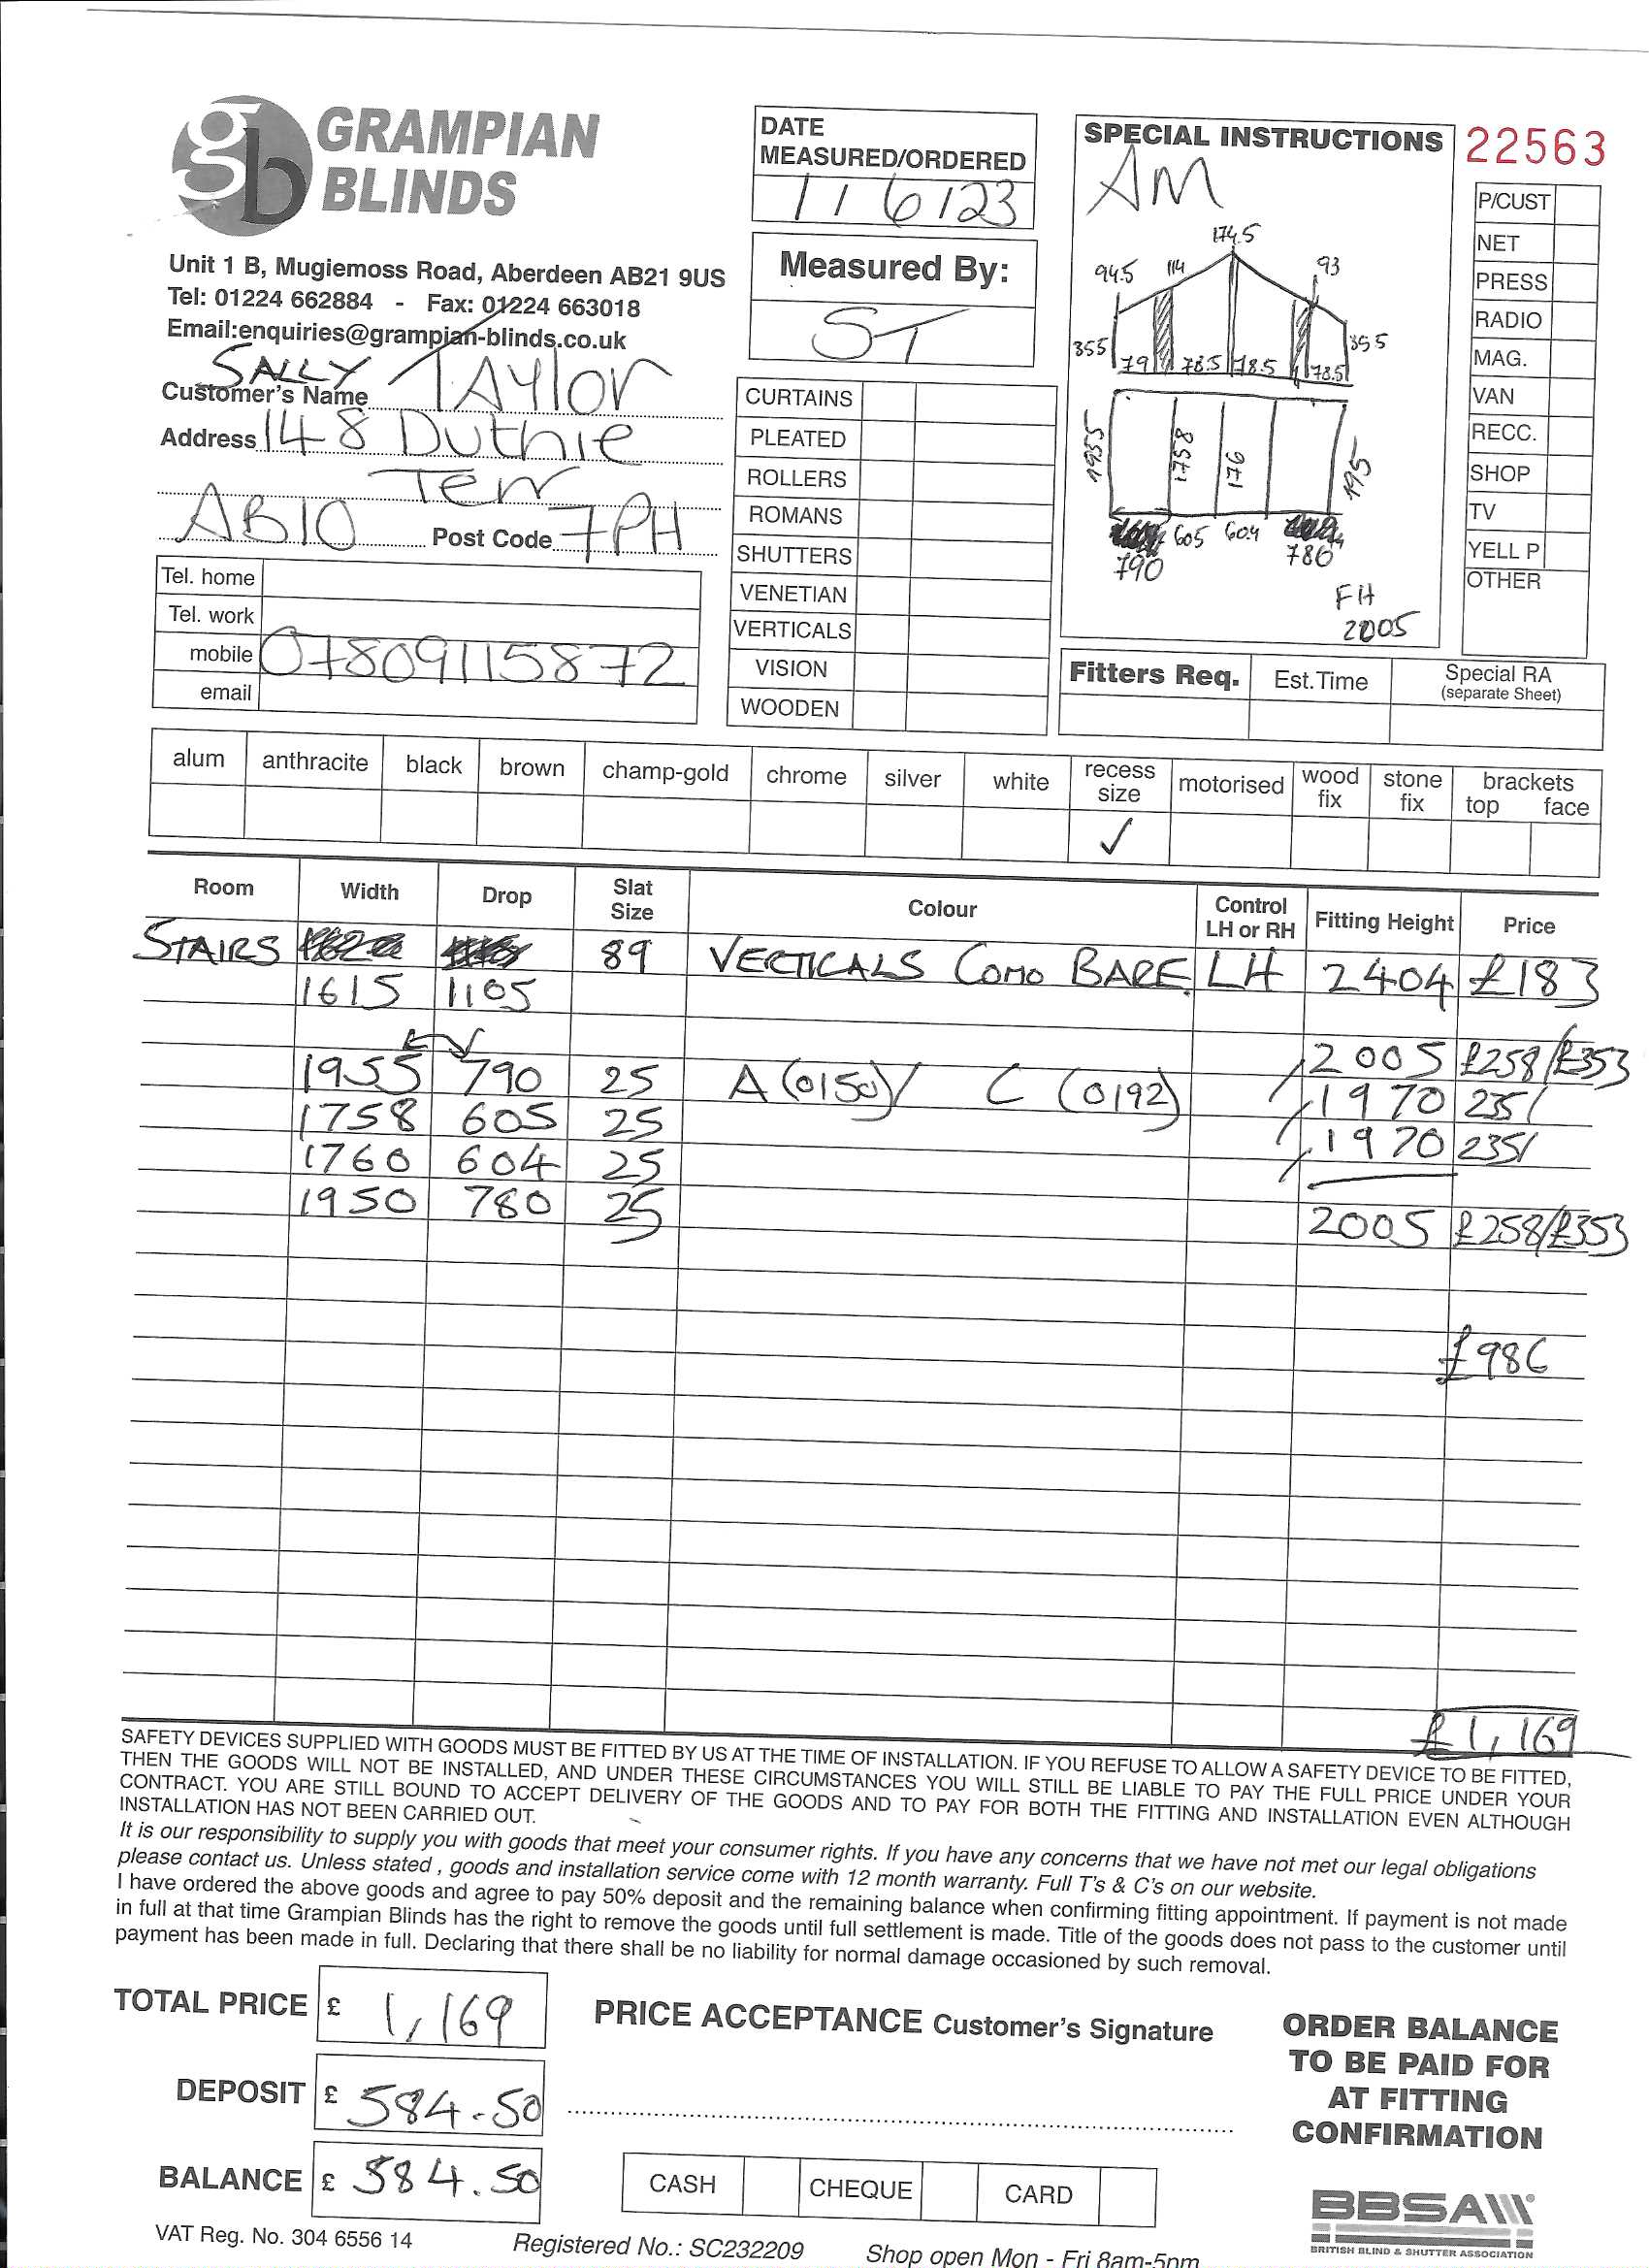 GRAMPIAN
BLINDS
gb
Unit 1 B, Mugiemoss Road, Aberdeen AB21 9US
Tel: 01224 662884 - Fax: 01224 663018
Email:enquiries@grampian-blinds.co.uk
Customer's Name SALLY TAYLOR
Address 148 Duthie
Terr
AB10 Post Code 7PH
Tel. home
Tel. work
mobile 07809115872
email
DATE
MEASURED/ORDERED
1/6/23
Measured By:
ST
CURTAINS
PLEATED
ROLLERS
ROMANS
SHUTTERS
VENETIAN
VERTICALS
VISION
WOODEN
SPECIAL INSTRUCTIONS
AM
174.5
94.5 114 93
355 355
79 78.5 78.5 78.5
1955 1758 176 195
605 604
790 780
FH
2005
22563
P/CUST
NET
PRESS
RADIO
MAG.
VAN
RECC.
SHOP
TV
YELL P
OTHER
Fitters Req. Est.Time Special RA
(separate Sheet)
alum anthracite black brown champ-gold chrome silver white recess size motorised wood fix stone fix brackets top face
✓
Room Width Drop Slat Size Colour Control LH or RH Fitting Height Price
STAIRS 89 VERTICALS COMO BARE. LH 2404 £183
1615 1105
1955 790 25 A (0150) / C (0192) 2005 £258/£353
1758 605 25 1970 235/
1760 604 25 1970 235/
1950 780 25 2005 £258/£353
£986
£1,169
SAFETY DEVICES SUPPLIED WITH GOODS MUST BE FITTED BY US AT THE TIME OF INSTALLATION. IF YOU REFUSE TO ALLOW A SAFETY DEVICE TO BE FITTED,
THEN THE GOODS WILL NOT BE INSTALLED, AND UNDER THESE CIRCUMSTANCES YOU WILL STILL BE LIABLE TO PAY THE FULL PRICE UNDER YOUR
CONTRACT. YOU ARE STILL BOUND TO ACCEPT DELIVERY OF THE GOODS AND TO PAY FOR BOTH THE FITTING AND INSTALLATION EVEN ALTHOUGH
INSTALLATION HAS NOT BEEN CARRIED OUT.
It is our responsibility to supply you with goods that meet your consumer rights. If you have any concerns that we have not met our legal obligations
please contact us. Unless stated , goods and installation service come with 12 month warranty. Full T's & C's on our website.
I have ordered the above goods and agree to pay 50% deposit and the remaining balance when confirming fitting appointment. If payment is not made
in full at that time Grampian Blinds has the right to remove the goods until full settlement is made. Title of the goods does not pass to the customer until
payment has been made in full. Declaring that there shall be no liability for normal damage occasioned by such removal.
TOTAL PRICE £ 1,169
DEPOSIT £ 584.50
BALANCE £ 584.50
PRICE ACCEPTANCE Customer's Signature
CASH CHEQUE CARD
ORDER BALANCE
TO BE PAID FOR
AT FITTING
CONFIRMATION
BBSA
BRITISH BLIND & SHUTTER ASSOCIATION
VAT Reg. No. 304 6556 14 Registered No.: SC232209 Shop open Mon - Fri 8am-5pm